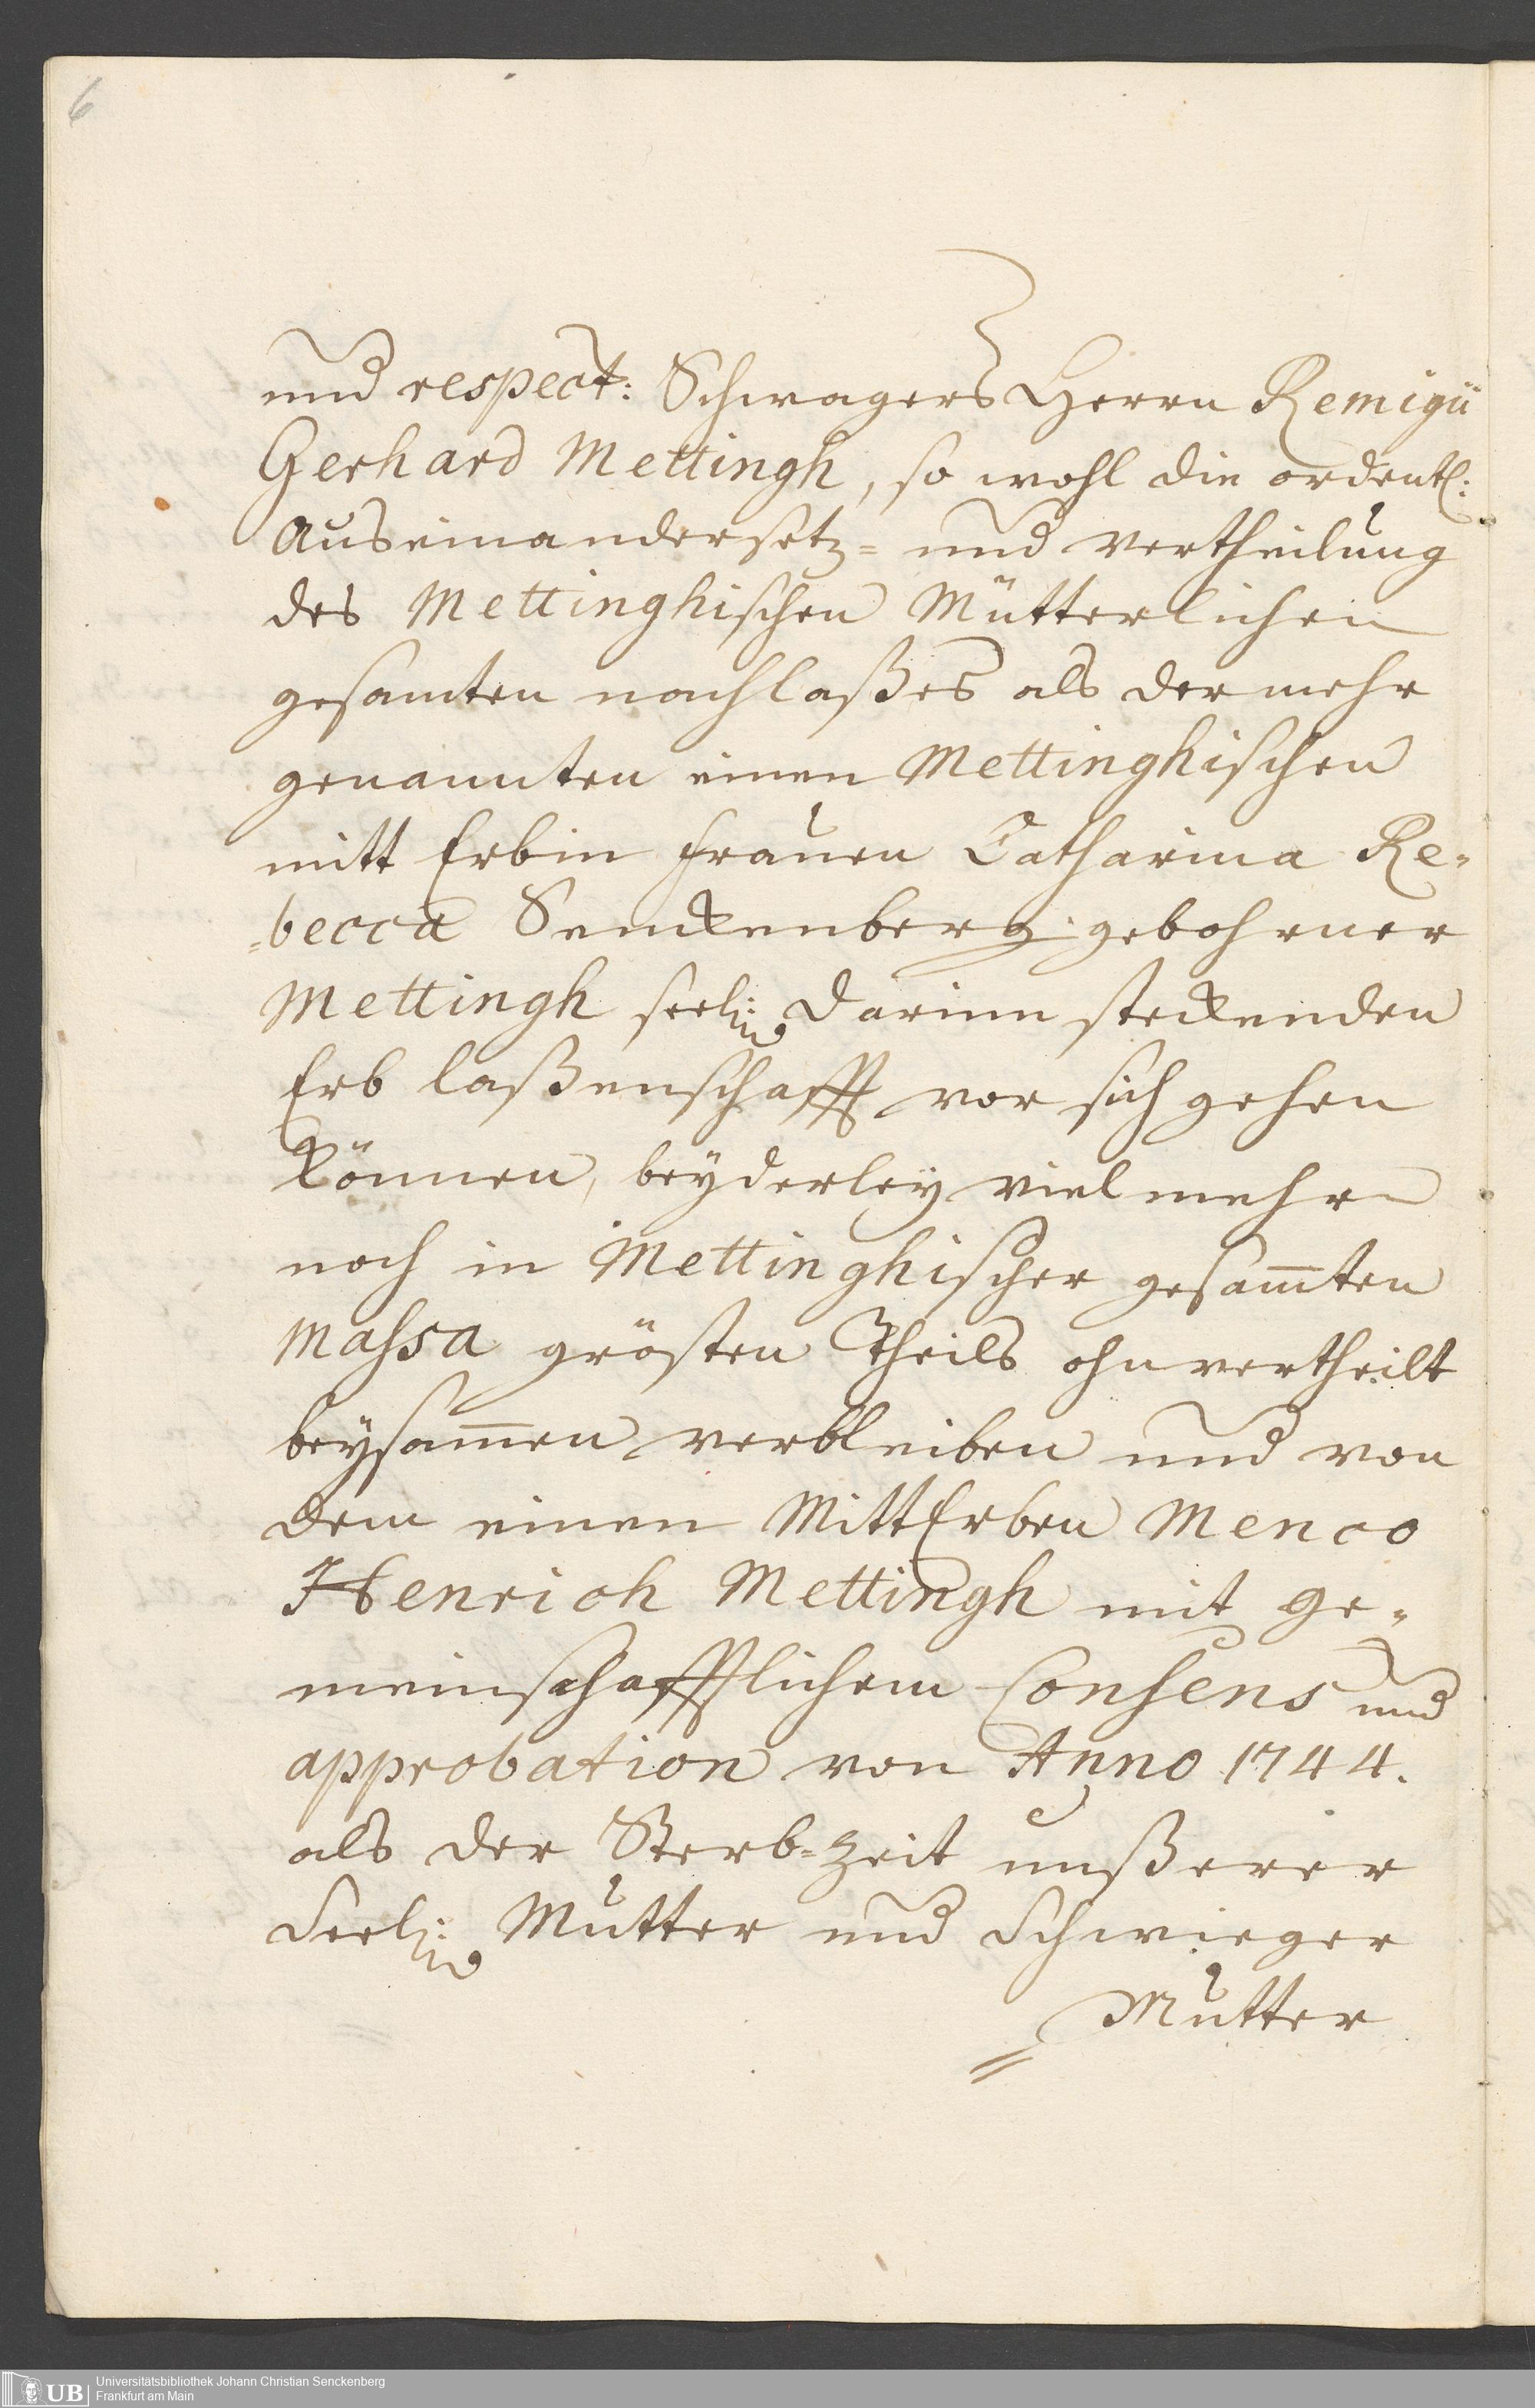 6
und respect: Schwagers Herrn Remigii
Gerhard Mettingh, so wohl die ordentl:
Auseinandersetz= und Vertheilung
des Mettinghischen Mütterlichen
gesamten nachlaßes als der mehr
genannten einen Mettinghischen
mitt Erbin Frauen Catharina Re=
=becca Senckenberg gebohrner
Mettingh seel: darinn steckenden
Erb laßenschafft vor sich gehen
können, beyderley vielmehr
noch in Mettinghischer gesam̅ten
Massa grösten Theils ohnvertheilt
beysam̅en verbleiben und von
dem einen MittErben Menco
Henrich Mettingh mit ge=
meinschafftlichem Consens und
approbation von Anno 1744.
als der Sterb=Zeit unßerer
Seel: Mutter und Schwieger
Mutter
UB Universitätsbibliothek Johann Christian Senckenberg
Frankfurt am Main